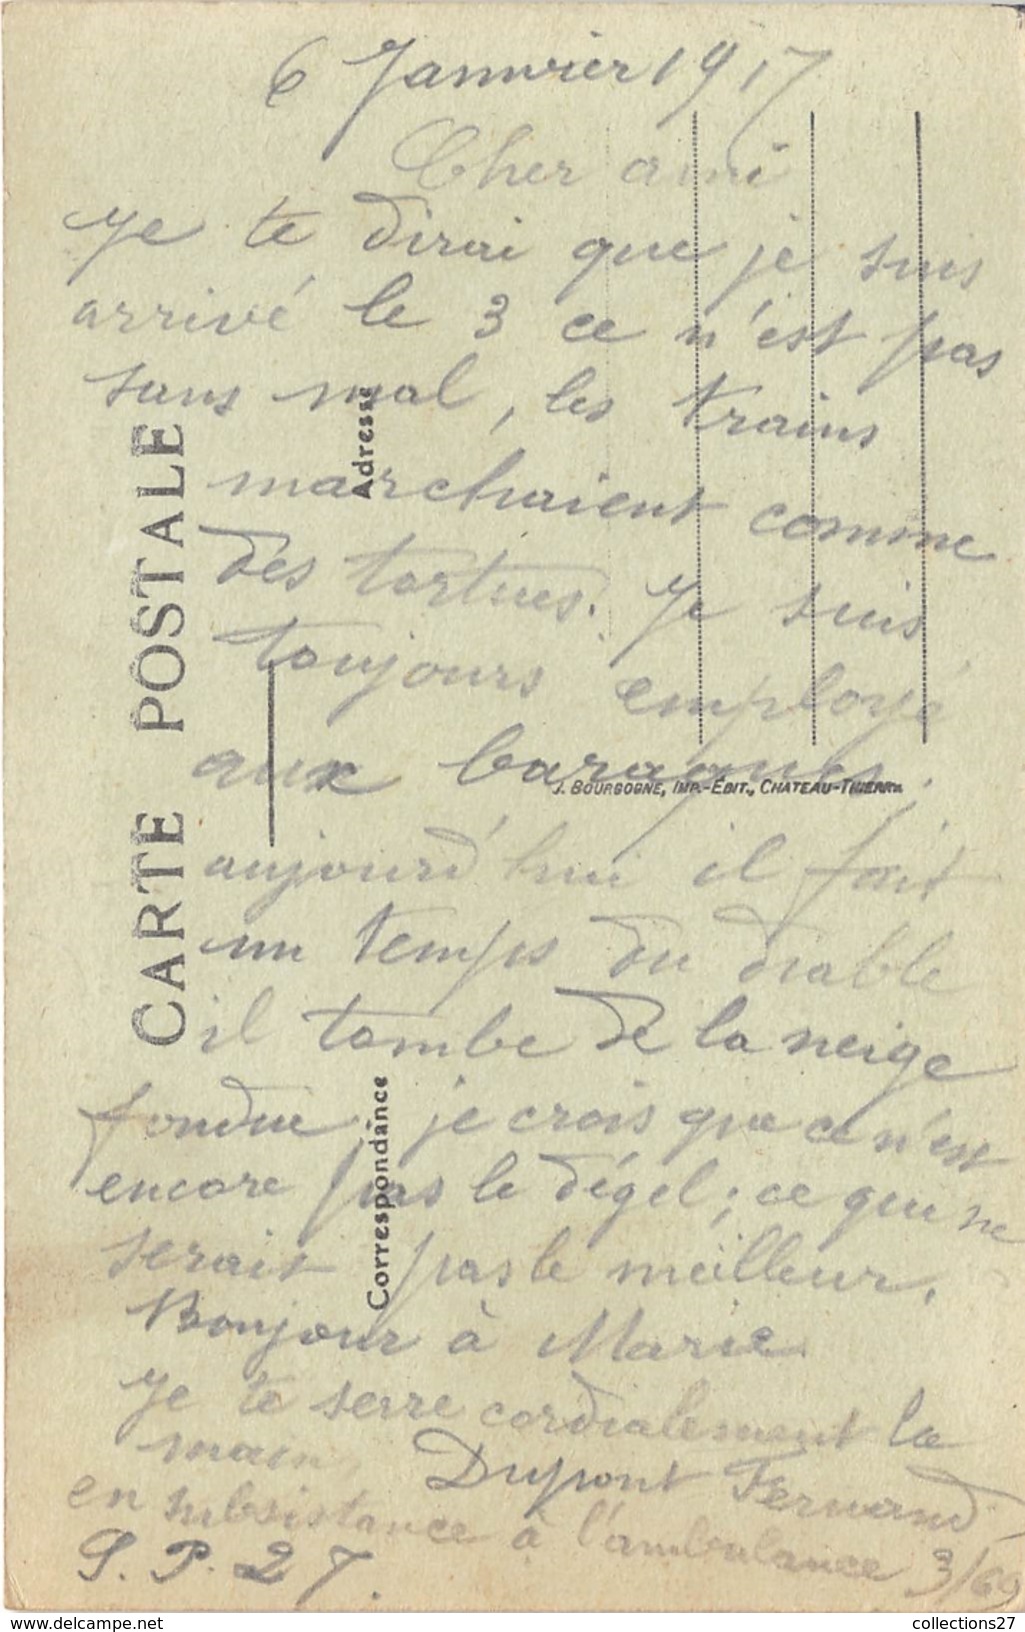 6 Janvier 1917
Cher ami
Je te dirai que je suis
arrivé le 3 ce n'est pas
sans mal, les trains
marchaient comme
des tortues. Je suis
toujours employé
aux baraques.
aujourd'hui il fait
un temps du diable
il tombe de la neige
fondue je crois que ce n'est
encore pas le dégel; ce qui ne
serait pas le meilleur.
Bonjour à Marie
Je te serre cordialement la
main, Dupont Fernand
en subsistance à l'ambulance 3/69
S. P. 27.
CARTE POSTALE
Correspondance
Adresse
J. BOURGOGNE, IMP.-ÉDIT., CHATEAU-THIERRY
collections27